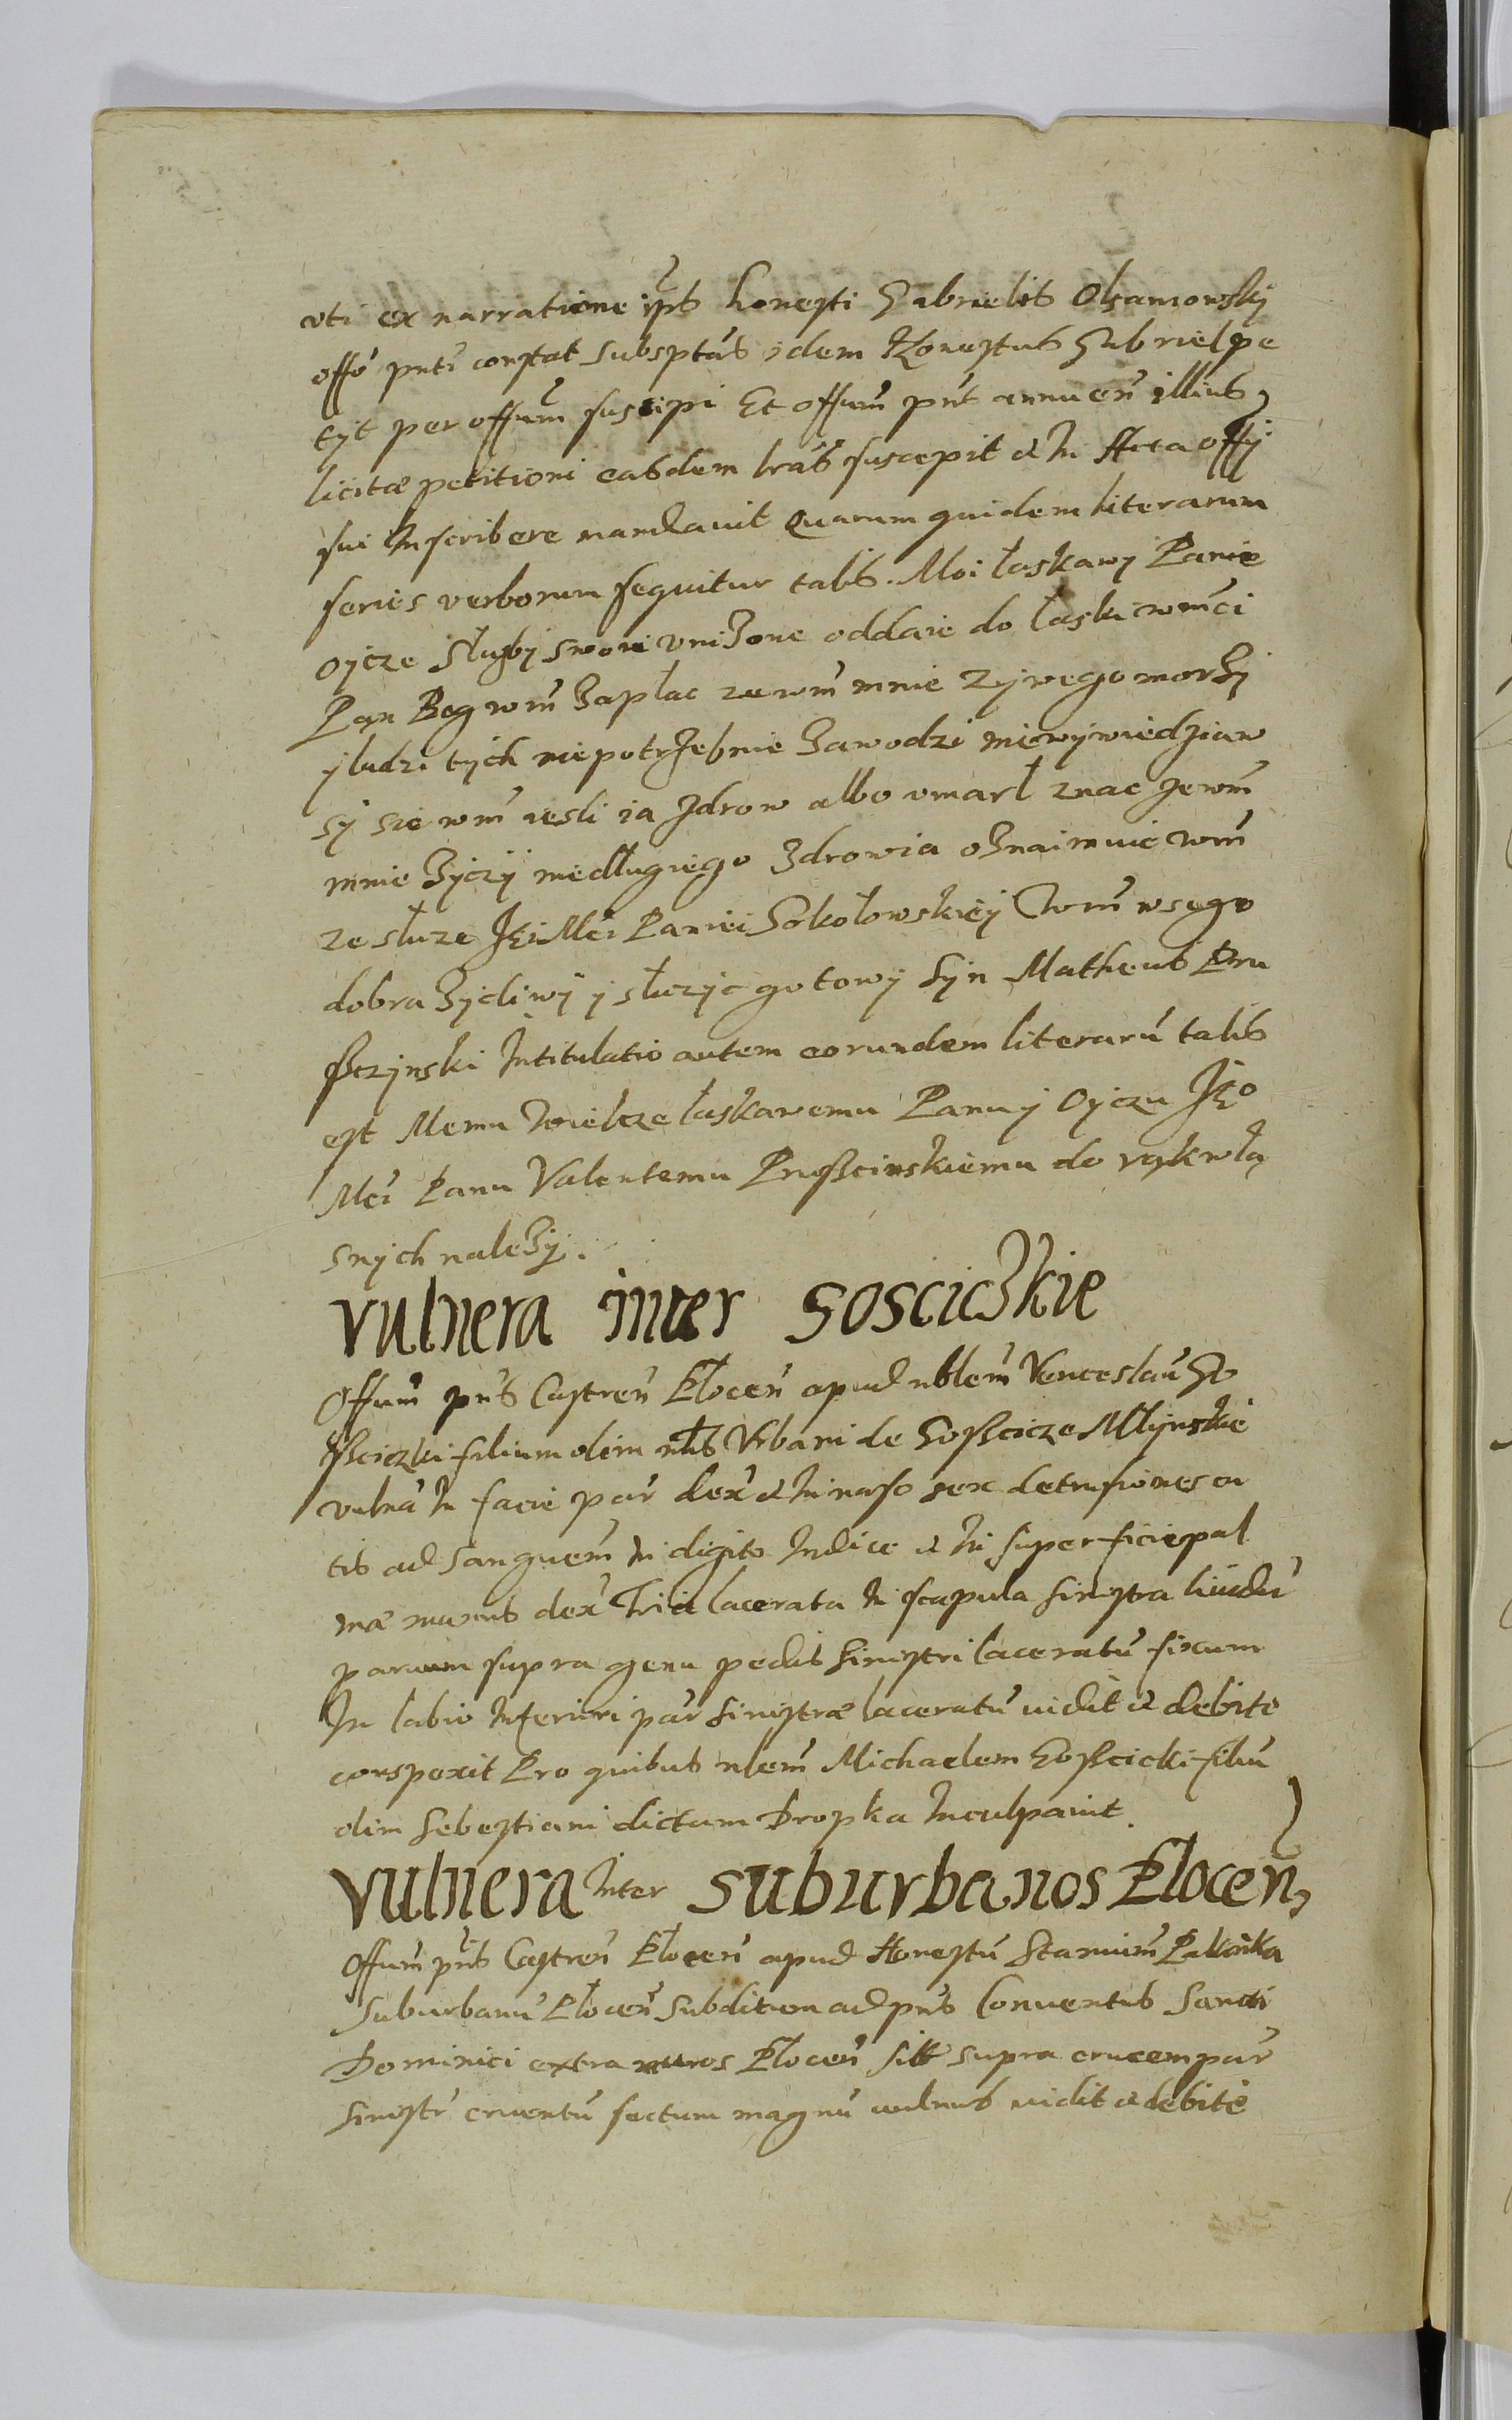 vti ex narratione ipīs honesti Gabrielis Olszanowskÿ
offō pntī constat subsptās idem Honestus Gabriel pe
tÿt per offum̄ suscipi Et offum̄ pnt̄ annuen̄ illius
licitæ petitioni easdem lrās suscepit et In Acta offÿ
sui Inscribere mandauit Quarum quidem literarum
series verborum sequitur talis. Moi łaskawÿ Panie
oÿcze Słuzbÿ swoie vnizone oddaie do łaski wm̄ci
Pan Bog wm̄ zapłac ze wm̄ mnie zÿwego morzÿ
ÿ ludzi tÿch niepotrzebnie zawodzi nie wÿwiedziaw
sÿ sie wm̄ iesli ia zdrow albo vmarł znac ze wm̄
mnie zÿczÿ niedługiego zdrowia oznaimuie wm̄
ze słuze Jei Mci Paniei Sokołowskieÿ wm̄ wsego
dobra zÿcliwÿ ÿ słuzÿc gotowÿ Sÿn Matheus Pru
sczÿnski Intitulatio autem earundem literarū talis
est Memu wielce łaskawemu Panu ÿ Oÿczu Jeo
Mci Panu Valentemu Prusscinskiemu do rąk wła
snÿch nalezÿ.
Vulnera inter Gosciczkie
Offum̄ pns̄ Castren̄ Płocen̄ apud nblem̄ Venceslau Go
ssciczki filium olim nbls Vrbani de Gosscicze Młÿnskie
vulnā In facie par̄ dex̄ et In naso sex detrusiones cu
tis ad sanguem̄ In digito Indice et In superficie pal
mæ manus dex̄ Tria lacerata In scapula sinistra liuidū
paruum supra genu pedis sinistri laceratū siccum
In labio Inferiori par̄ sinistræ laceratū uidit et debite
conspexit Pro quibus nblem̄ Michaelem Gosscicki filiū
olim Sebestiani dictum Dropka Inculpauit.
Vulnera Inter suburbanos Płocen̄
Offum̄ pns̄ Castren̄ Płocen̄ apud Honestū Stanium̄
Suburbanū Płocen̄ Subditum ad pns̄ Conuentus Sancti
Dominici extra muros Płocen̄ supra crucem par̄
sinistr̄ cruentū sectum magnū vulnus uidit et debite